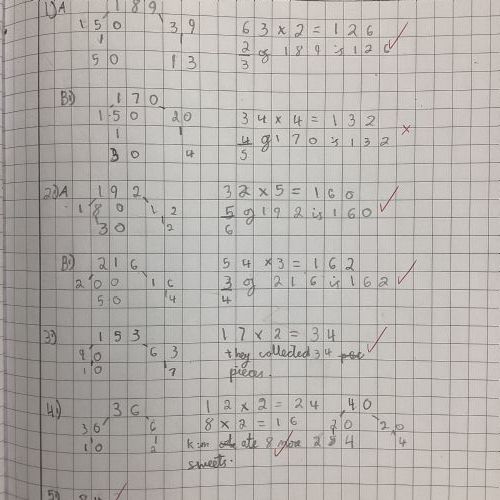 1) A 189
150 39 63 × 2 = 126
50 13 2/3 of 189 is 126
B) 170
150 20 34 × 4 = 132
30 4 4/5 of 170 is 132
2) A 192 32 × 5 = 160
180 12 5/6 of 192 is 160
30 2
B) 216 54 × 3 = 162
200 16 3/4 of 216 is 162
50 4
3) 153 17 × 2 = 34
90 63 they collected 34
10 7 pieces.
4) 36 12 × 2 = 24 40
30 6 8 × 2 = 16 20 20
10 2 ate 8 more 4 4
sweets.
5)